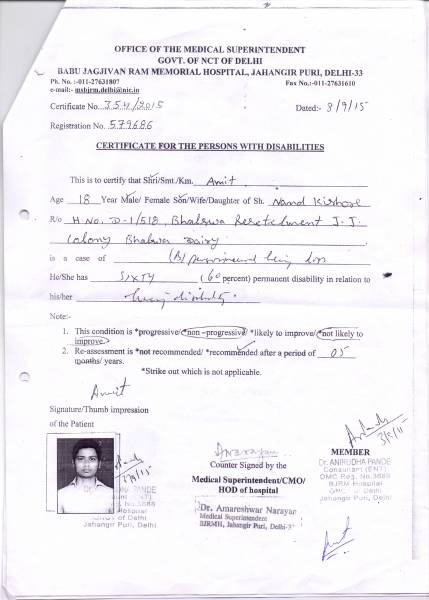 OFFICE OF THE MEDICAL SUPERINTENDENT
GOVT. OF NCT OF DELHI
BABU JAGJIVAN RAM MEMORIAL HOSPITAL, JAHANGIR PURI, DELHI-33
Ph. No. :-011-27631807 Fax No.:-011-27631610
e-mail:- msbjrm.delhi@nic.in
Certificate No. 354/2015 Dated:- 3/9/15
Registration No. 579686
CERTIFICATE FOR THE PERSONS WITH DISABILITIES
This is to certify that Shri/Smt./Km. Amit
Age 18 Year Male/ Female Son/Wife/Daughter of Sh. Nand Kishore
R/o H.No. D-1/518, Bhalswa J-J.
Colony Bhalswa Dairy
is a case of (B) loss
He/She has SIXTY (60 percent) permanent disability in relation to
his/her disability
Note:-
1. This condition is *progressive/*non –progressive/ *likely to improve/*not likely to
improve.
2. Re-assessment is *not recommended/ *recommended after a period of 05
months/ years.
*Strike out which is not applicable.
Amit
Signature/Thumb impression
of the Patient
Counter Signed by the
Medical Superintendent/CMO/
HOD of hospital
Dr. Amareshwar Narayan
Medical Superintendent
BJRMH, Jahangir Puri, Delhi-
3/9/15
MEMBER
Dr. ANIRUDHA PANDE
Consultant (ENT)
DMC Reg. No.3669
BJRM Hospital
Jahangir Puri, Delhi
PANDE
Hospital
of Delhi
Jahangir Puri, Delhi